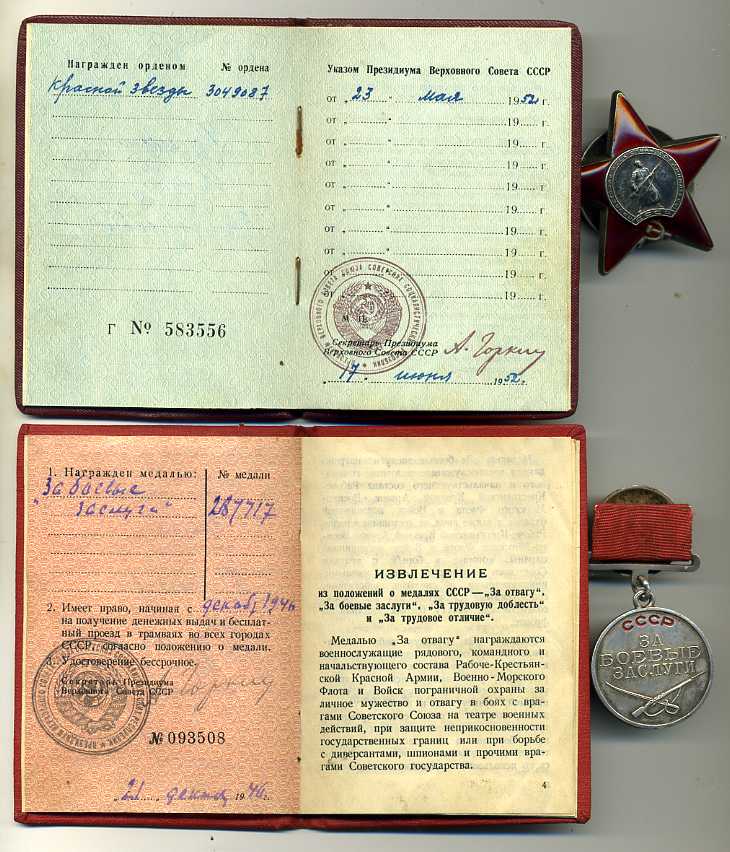 Награжден орденом № ордена
Красной Звезды 3049087
Указом Президиума Верховного Совета СССР
от „ 23 “ мая 1952 г.
от „ “ 19 г.
от „ “ 19 г.
от „ “ 19 г.
от „ “ 19 г.
от „ “ 19 г.
от „ “ 19 г.
от „ “ 19 г.
от „ “ 19 г.
от „ “ 19 г.
Г № 583556
М. П.
Секретарь Президиума
Верховного Совета СССР А. Горкин
„17“ июня 1952 г.
1. Награжден медалью: № медали
„За боевые
заслуги“ 287717
2. Имеет право, начиная с декабр 1946
на получение денежных выдач и бесплат-
ный проезд в трамваях во всех городах
СССР, согласно положению о медали.
3. Удостоверение бессрочное.
Секретарь Президиума
Верховного Совета СССР Горкин
№ 093508
„21“ декаб 1946 г.
ИЗВЛЕЧЕНИЕ
из положений о медалях СССР—„За отвагу“,
„За боевые заслуги“, „За трудовую доблесть“
и „За трудовое отличие“.
Медалью „За отвагу“ награждаются
военнослужащие рядового, командного и
начальствующего состава Рабоче-Крестьян-
ской Красной Армии, Военно-Морского
Флота и Войск пограничной охраны за
личное мужество и отвагу в боях с вра-
гами Советского Союза на театре военных
действий, при защите неприкосновенности
государственных границ или при борьбе
с диверсантами, шпионами и прочими вра-
гами Советского государства.
4
СССР
ЗА
БОЕВЫЕ
ЗАСЛУГИ